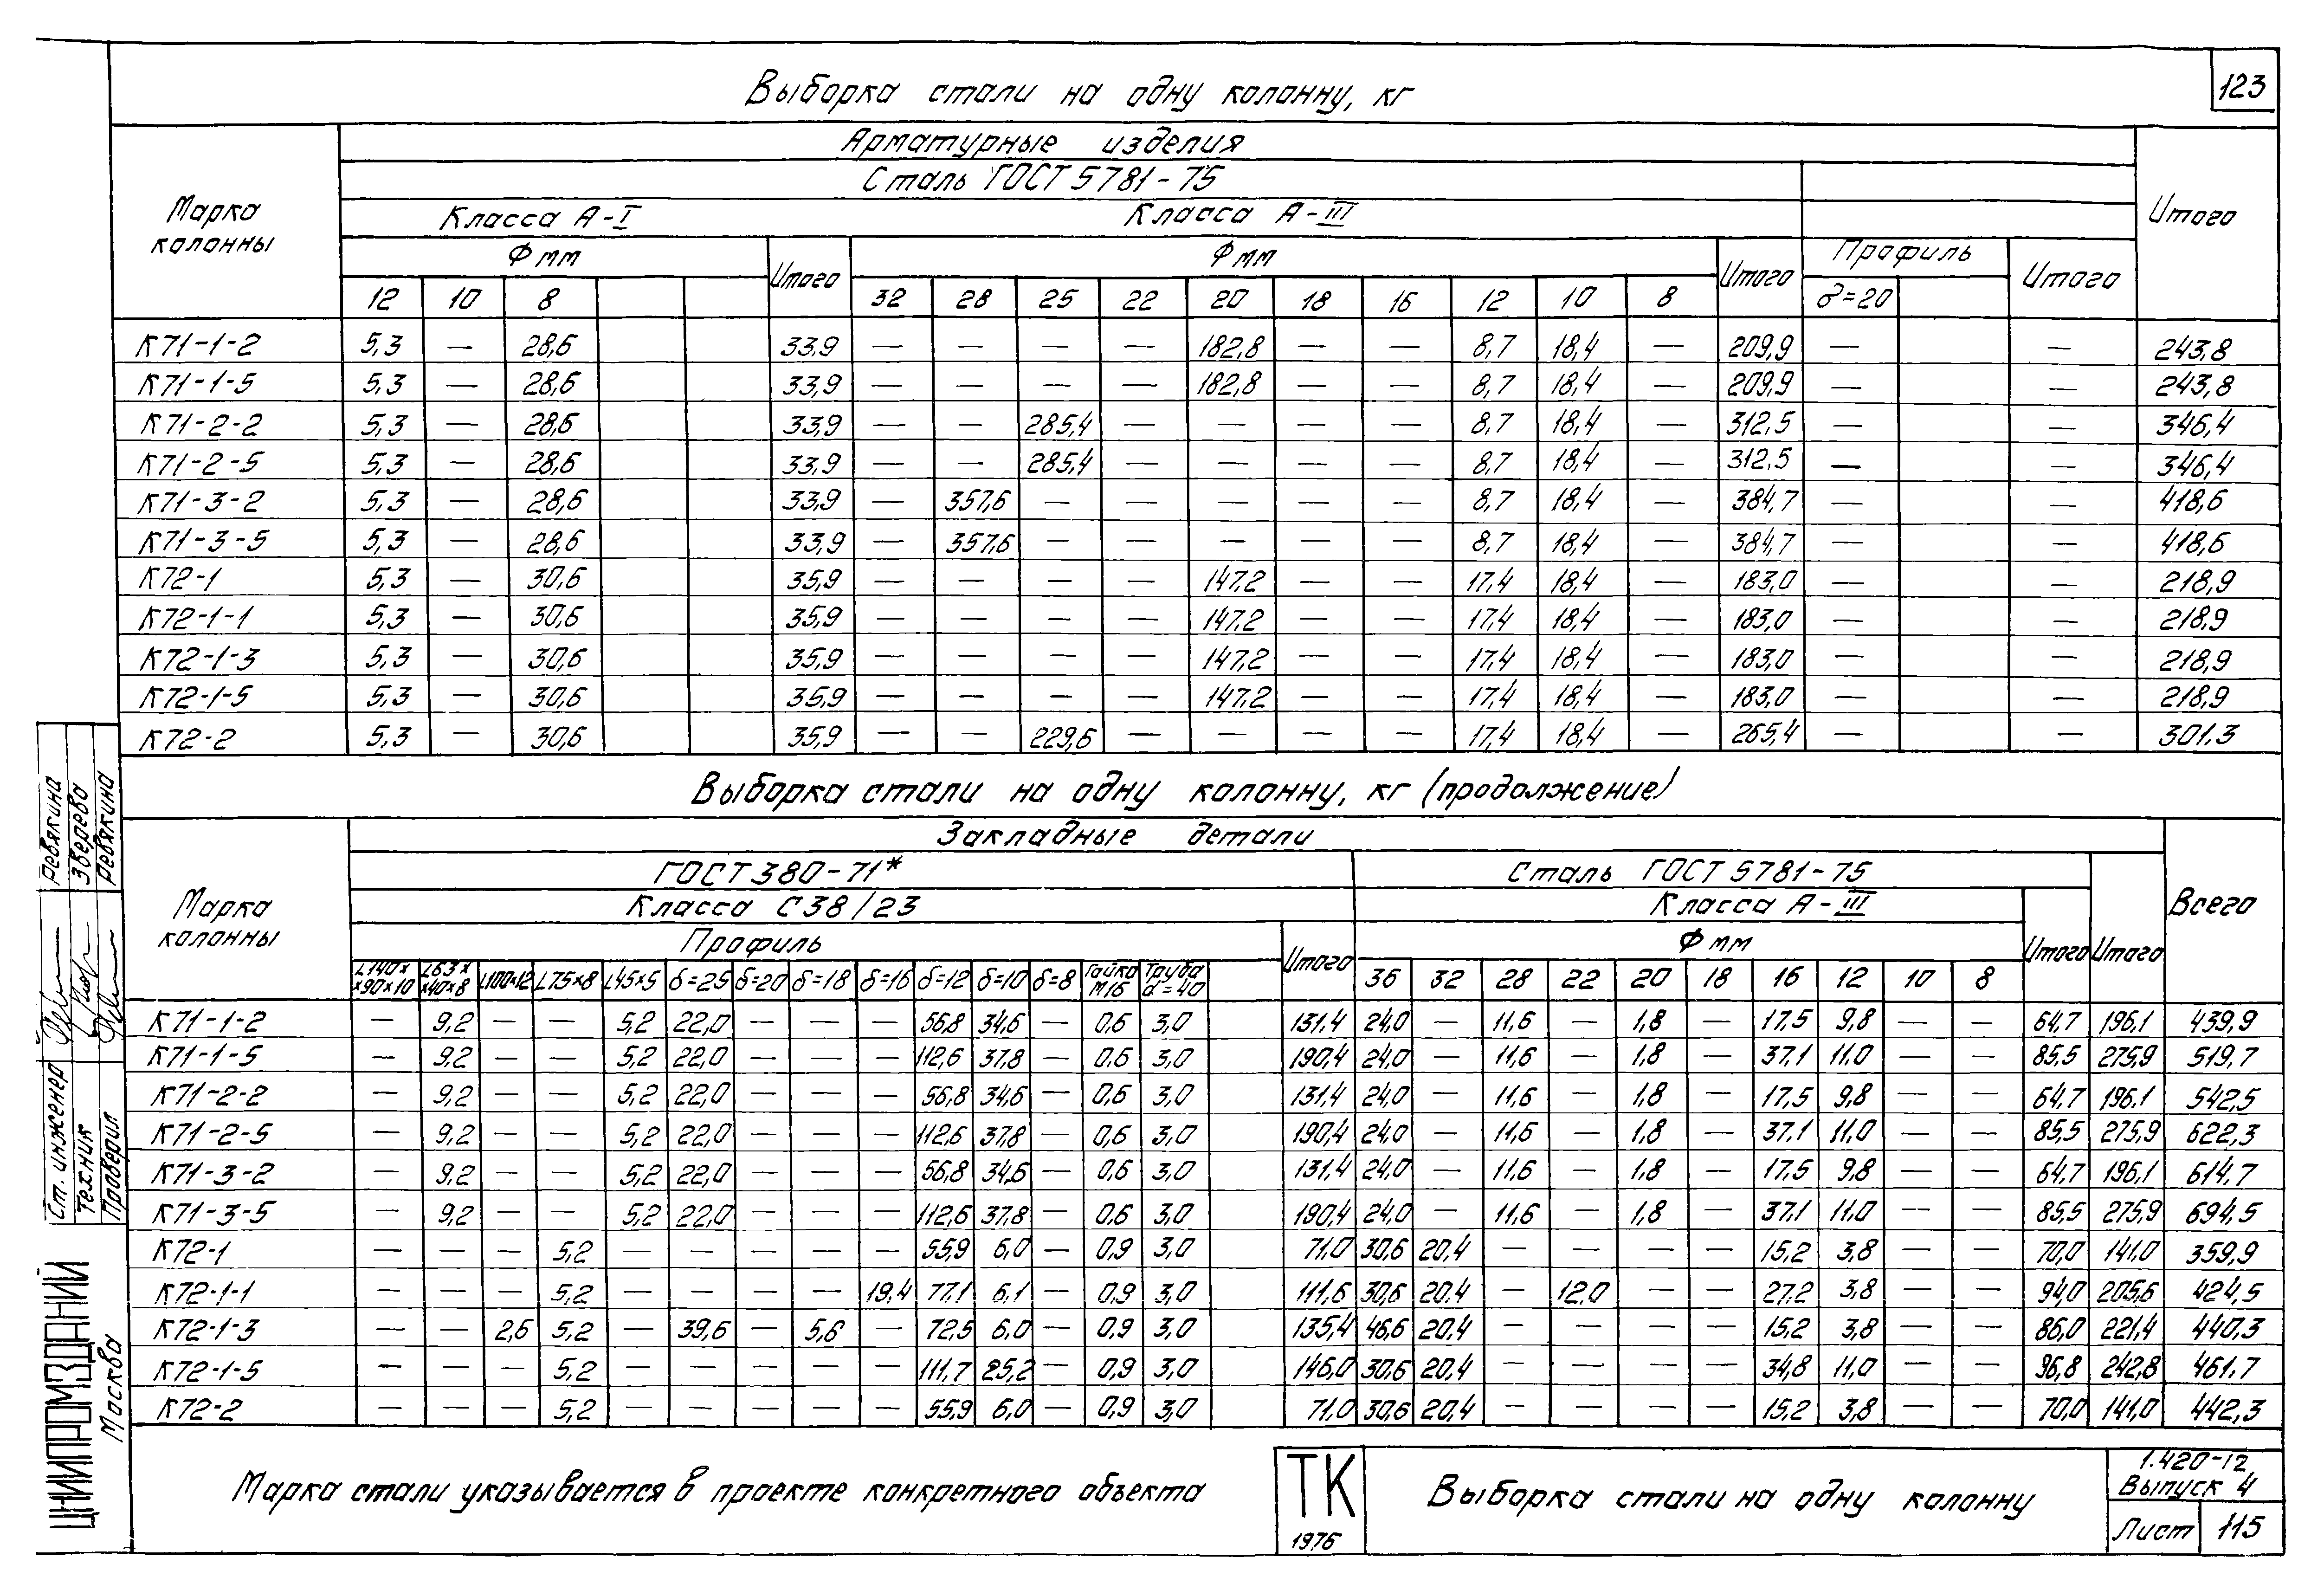 123
Выборка стали на одну колонну, кг
Марка колонны
Арматурные изделия
Итого
Сталь ГОСТ 5781-75
Класса А-I Класса А-III
Ф мм Итого Ф мм Итого Профиль Итого
12 10 8 32 28 25 22 20 18 16 12 10 8 δ=20
К71-1-2 5,3 — 28,6 33,9 — — — — 182,8 — — 8,7 18,4 — 209,9 — — 243,8
К71-1-5 5,3 — 28,6 33,9 — — — — 182,8 — — 8,7 18,4 — 209,9 — — 243,8
К71-2-2 5,3 — 28,6 33,9 — — 285,4 — — — — 8,7 18,4 — 312,5 — — 346,4
К71-2-5 5,3 — 28,6 33,9 — — 285,4 — — — — 8,7 18,4 — 312,5 — — 346,4
К71-3-2 5,3 — 28,6 33,9 — 357,6 — — — — — 8,7 18,4 — 384,7 — — 418,6
К71-3-5 5,3 — 28,6 33,9 — 357,6 — — — — — 8,7 18,4 — 384,7 — — 418,6
К72-1 5,3 — 30,6 35,9 — — — — 147,2 — — 17,4 18,4 — 183,0 — — 218,9
К72-1-1 5,3 — 30,6 35,9 — — — — 147,2 — — 17,4 18,4 — 183,0 — — 218,9
К72-1-3 5,3 — 30,6 35,9 — — — — 147,2 — — 17,4 18,4 — 183,0 — — 218,9
К72-1-5 5,3 — 30,6 35,9 — — — — 147,2 — — 17,4 18,4 — 183,0 — — 218,9
К72-2 5,3 — 30,6 35,9 — — 229,6 — — — — 17,4 18,4 — 265,4 — — 301.3
Выборка стали на одну колонну, кг (продолжение)
Марка колонны
Закладные детали
Всего
ГОСТ 380-71* Сталь ГОСТ 5781-75
Класса С38/23 Класса А-III
Профиль Итого Ф мм Итого Итого
L140××90×10 L63××40×8 L100×12 L75×8 L45×5 δ=25 δ=20 δ=18 δ=16 δ=12 δ=10 δ=8 Гайка М16 Труба d=40 36 32 28 22 20 18 16 12 10 8
К71-1-2 — 9,2 — — 5,2 22,0 — — — 56,8 34,6 — 0,6 3,0 131.4 24,0 — 11,6 — 1,8 — 17,5 9,8 — — 64,7 196,1 439,9
К71-1-5 — 9,2 — — 5,2 22,0 — — — 112,6 37,8 — 0,6 3,0 190,4 24,0 — 11,6 — 1,8 — 37.1 11.0 — — 85,5 275,9 519,7
К71-2-2 — 9,2 — — 5,2 22,0 — — — 56,8 34,6 — 0,6 3,0 131,4 24,0 — 11,6 — 1,8 — 17,5 9,8 — — 64,7 196,1 542,5
К71-2-5 — 9,2 — — 5,2 22,0 — — — 112,6 37,8 — 0,6 3,0 190,4 24,0 — 11,6 — 1,8 — 37.1 11,0 — — 85,5 275,9 622,3
К71-3-2 — 9,2 — — 5,2 22,0 — — — 56,8 34,6 — 0,6 3,0 131,4 24,0 — 11,6 — 1,8 — 17,5 9,8 — — 64,7 196,1 614,7
К71-3-5 — 9,2 — — 5,2 22,0 — — — 112,6 37,8 — 0,6 3,0 190,4 24,0 — 11,6 — 1,8 — 37,1 11,0 — — 85,5 275,9 694,5
К72-1 — — — 5,2 — — — — — 55,9 6,0 — 0,9 3,0 71.0 30,6 20,4 — — — — 15,2 3,8 — — 70,0 141,0 359,9
К72-1-1 — — — 5,2 — — — — 19,4 77,1 6,1 — 0,9 3,0 111,6 30,6 20,4 — 12,0 — — 27,2 3,8 — — 94,0 205,6 424,5
К72-1-3 — — 2,6 5,2 — 39,6 — 5,6 — 72,5 6,0 — 0,9 3,0 135,4 46,6 20,4 — — — — 15,2 3,8 — — 86,0 221,4 440,3
К72-1-5 — — — 5,2 — — — — — 111,7 25,2 — 0,9 3,0 146,0 30,6 20,4 — — — — 34,8 11,0 — — 96,8 242,8 461.7
К72-2 — — — 5,2 — — — — — 55,9 6,0 — 0,9 3,0 71.0 30,6 20,4 — — — — 15,2 3,8 — — 70,0 141,0 442,3
Марка стали указывается в проекте конкретного объекта
ТК
1976
Выборка стали на одну колонну
1.420-12
Выпуск 4
Лист 115
Ст. инженер Ревякина
Техник Зверева
Проверил Ревякина
ЦНИИПРОМЗДАНИЙ
Москва